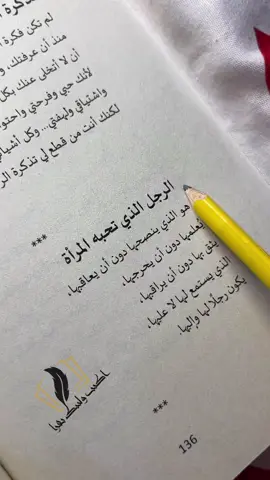 لم تكن فكرة
منذ أن عرفتك،
أن لا أتخلى عنك بكل
لأنك حبي وفرحتي
واشتياقي ولهفتي.. وكل
لكنك أنت من قطع لي تذكرة
***
الرجل الذي تحبه المرأة
هو الذي ينصحها دون أن يعاقبها،
يعلمها دون أن يجرحها،
يثق بها دون أن يراقبها،
الذي يستمع لها لا عليها،
يكون رجلًا لها وإليها.
***
136